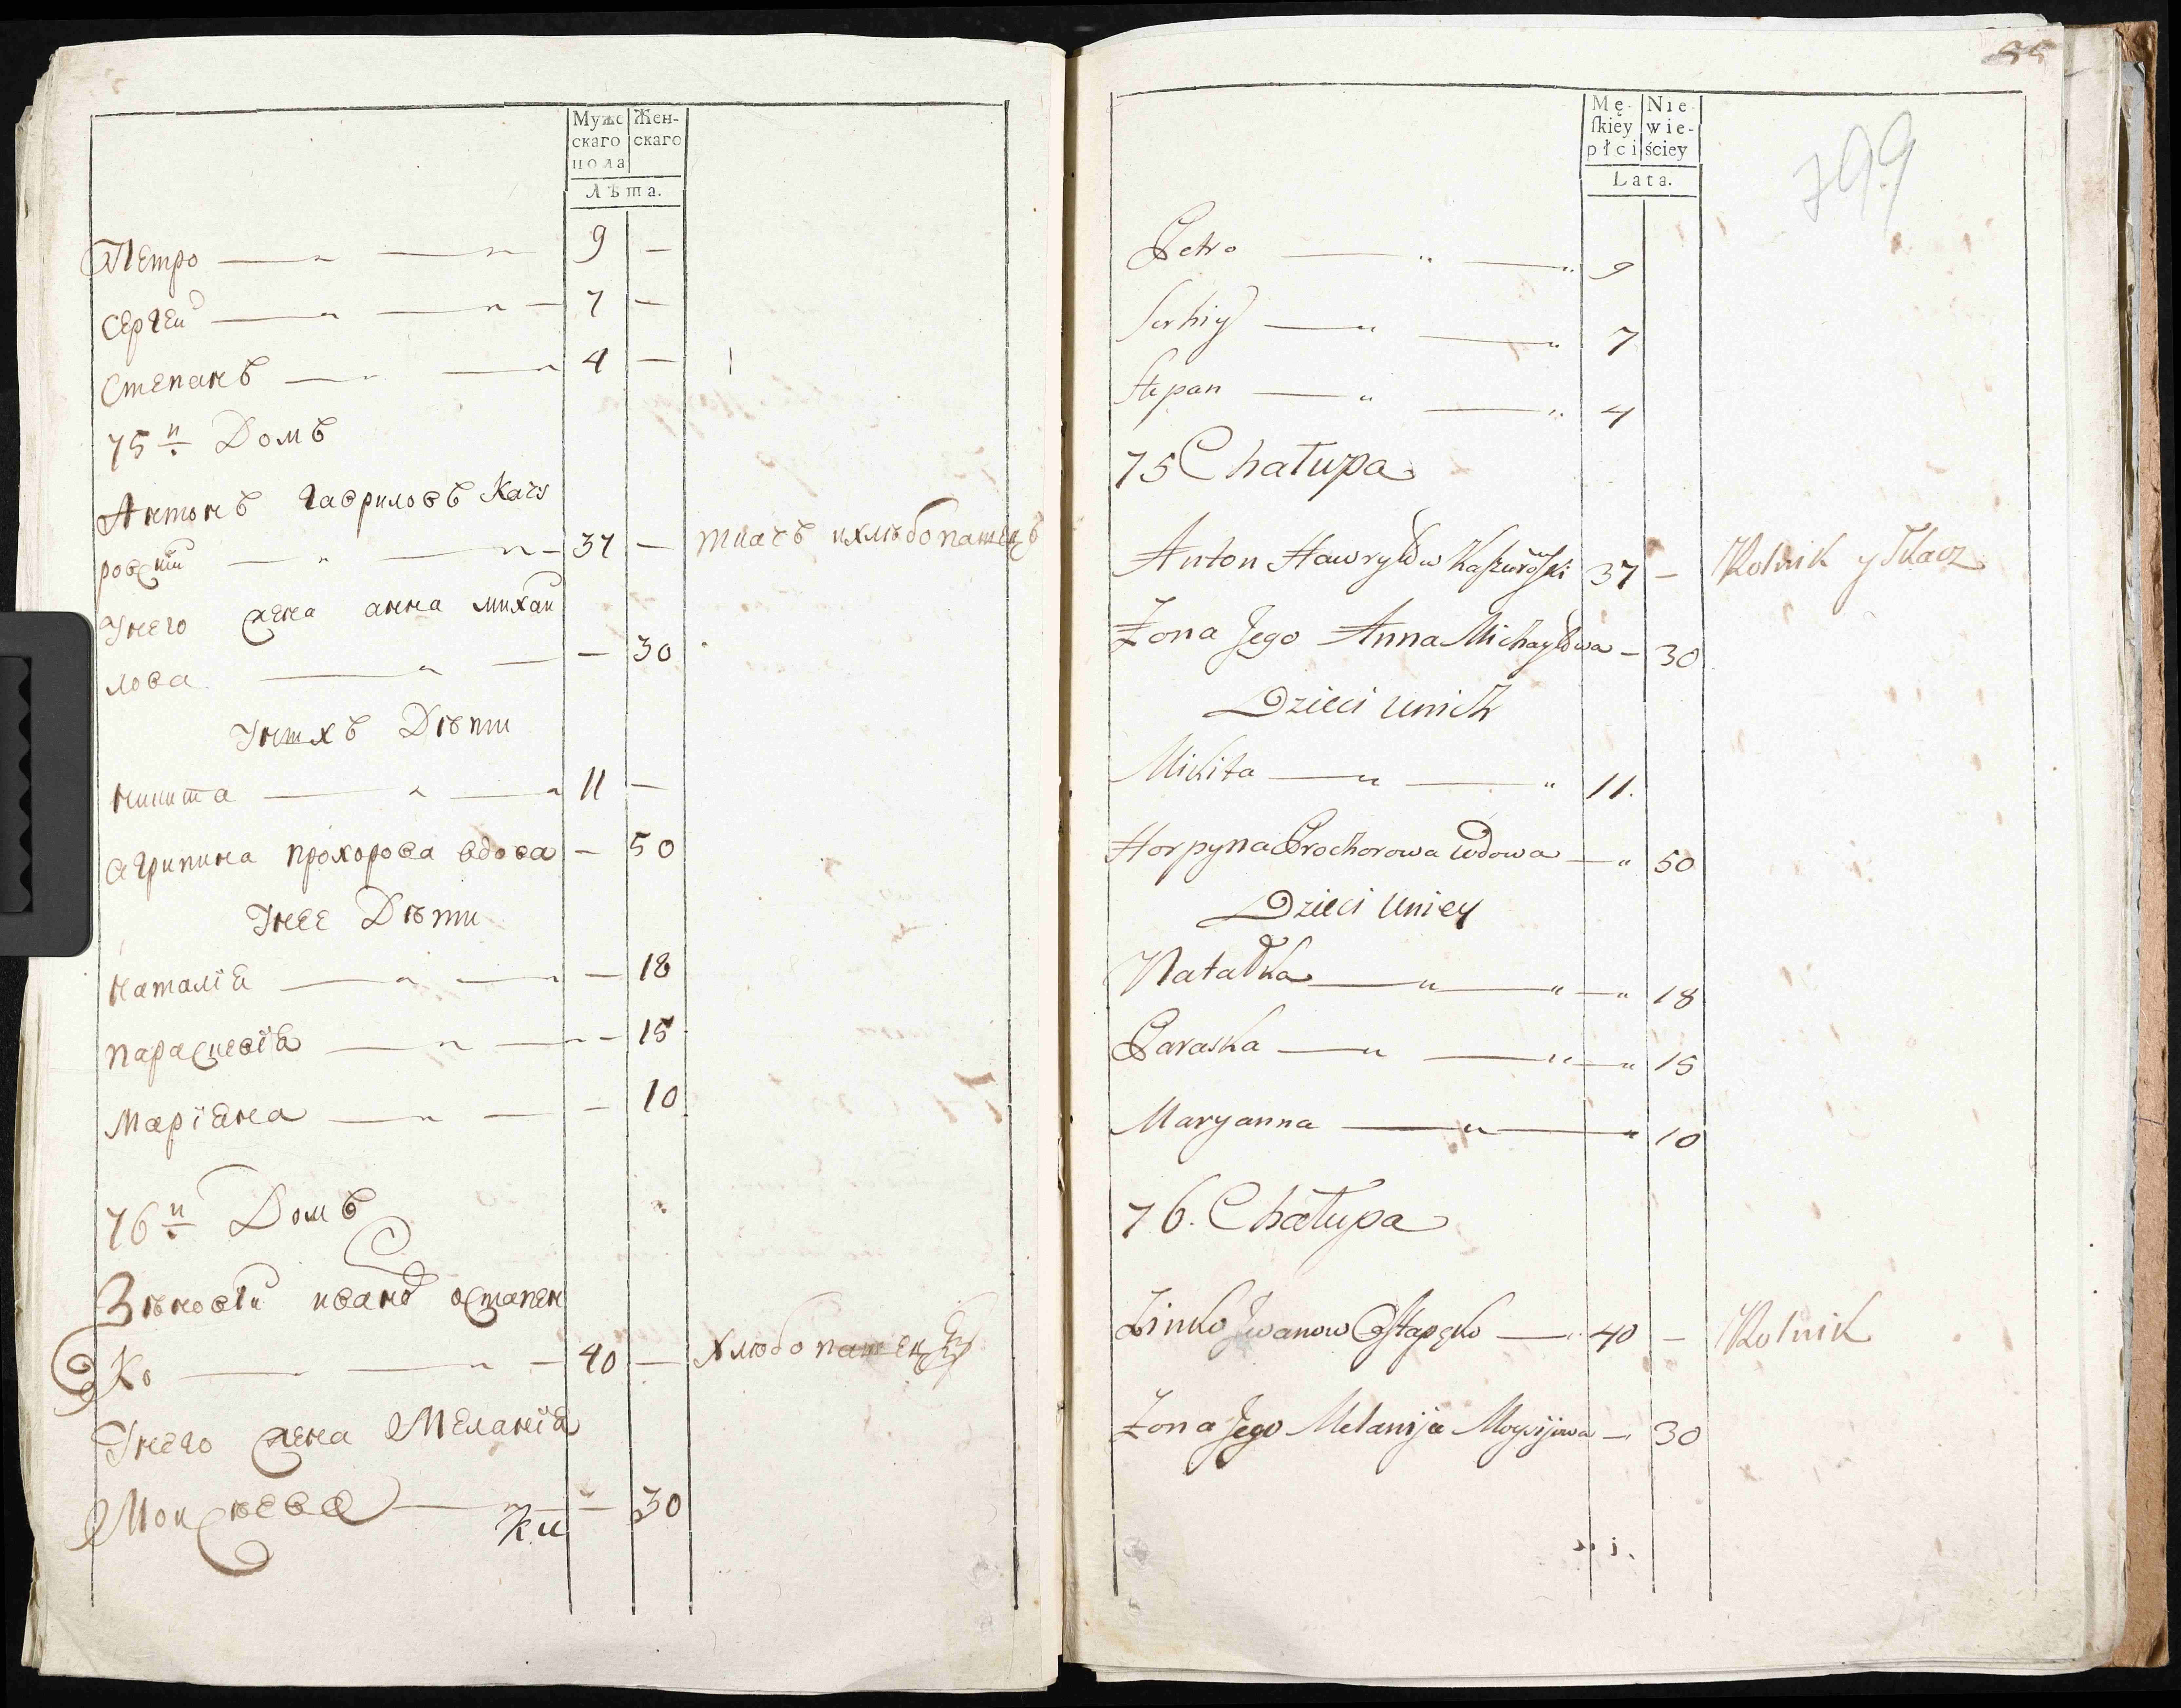 Муже
скаго
пола
Жен-
скаго
Лѣта.
Петро — „ — „ 9 —
Сергей — „ — „ — 7 —
Степанъ — „ — „ 4 —
75й Домъ
Антонъ Гавриловъ Кач
ровский — „ — „ — 37 — ткачъ ихлѣбопашецъ
Унего жена анна михаи
лова — „ — — 30
Унихъ Дѣти
никита — „ — „ 11 —
агрипина прохорова вдова — 50
Унее Дѣти
наталїа — „ — „ — 18
параскевїа — „ — „ — 15
марїана — „ — — 10
76й Домъ
Зѣновій иванъ остапен
ко — „ — „ — 40 — хлѣбопашецъ
Унего жена Меланїа
Моисѣева — „ — 30
ки
799
Mę-
ſkiey
płci
Nie-
wie-
ściey
Lata.
Petro — „ — „ 9
Serhiy — „ — „ 7
Stepan — „ — „ 4
75 Chałupa
Anton Hawryłow Kaszurowſki 37 — Rolnik y Tkacz
Żona Jego Anna Michayłowa — 30
Dzieci unich
Mikita — „ — „ 11.
Horpyna Prochorowa wdowa — „ 50
Dzieci uniey
Natałka — „ — „ — „ 18
Paraska — „ — „ — „ 15
Maryanna — „ — „ 10
76. Chałupa
Zinko Iwanow Oſtapęko — „ 40 — Rolnik
Żona Jego Melanija Moysijowa — 30